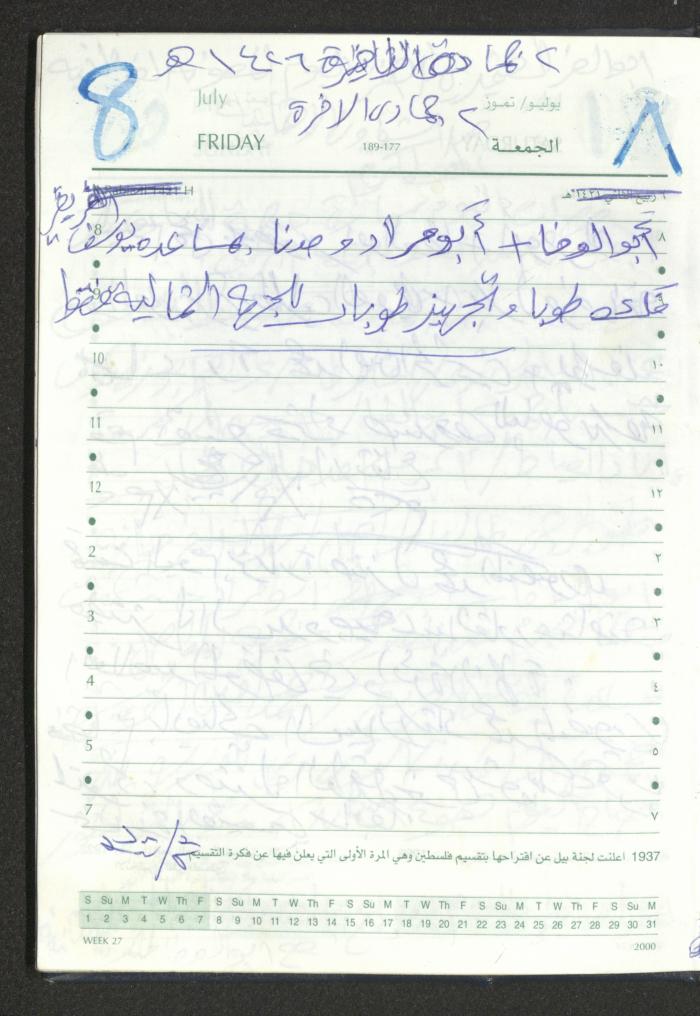 ٢ جمادى الآخرة ١٤٢٦ هـ
8 July يوليو/ تموز ١٨
٢ جمادى الاخرة
FRIDAY 189-177 الجمعــة
أبو الوفا + أبو مراد وحدنا بمساعدة يوسف
طوبا وتجهيز طوبار للجهة الشمالية فقط
8 ٨
9
10 ١٠
11 ١١
12 ١٢
2 ٢
3 ٣
4 ٤
5 ٥
7 ٧
1937 اعلنت لجنة بيل عن اقتراحها بتقسيم فلسطين وهي المرة الأولى التي يعلن فيها عن فكرة التقسيم
S Su M T W Th F S Su M T W Th F S Su M T W Th F S Su M T W Th F S Su M
1 2 3 4 5 6 7 8 9 10 11 12 13 14 15 16 17 18 19 20 21 22 23 24 25 26 27 28 29 30 31
WEEK 27 2000